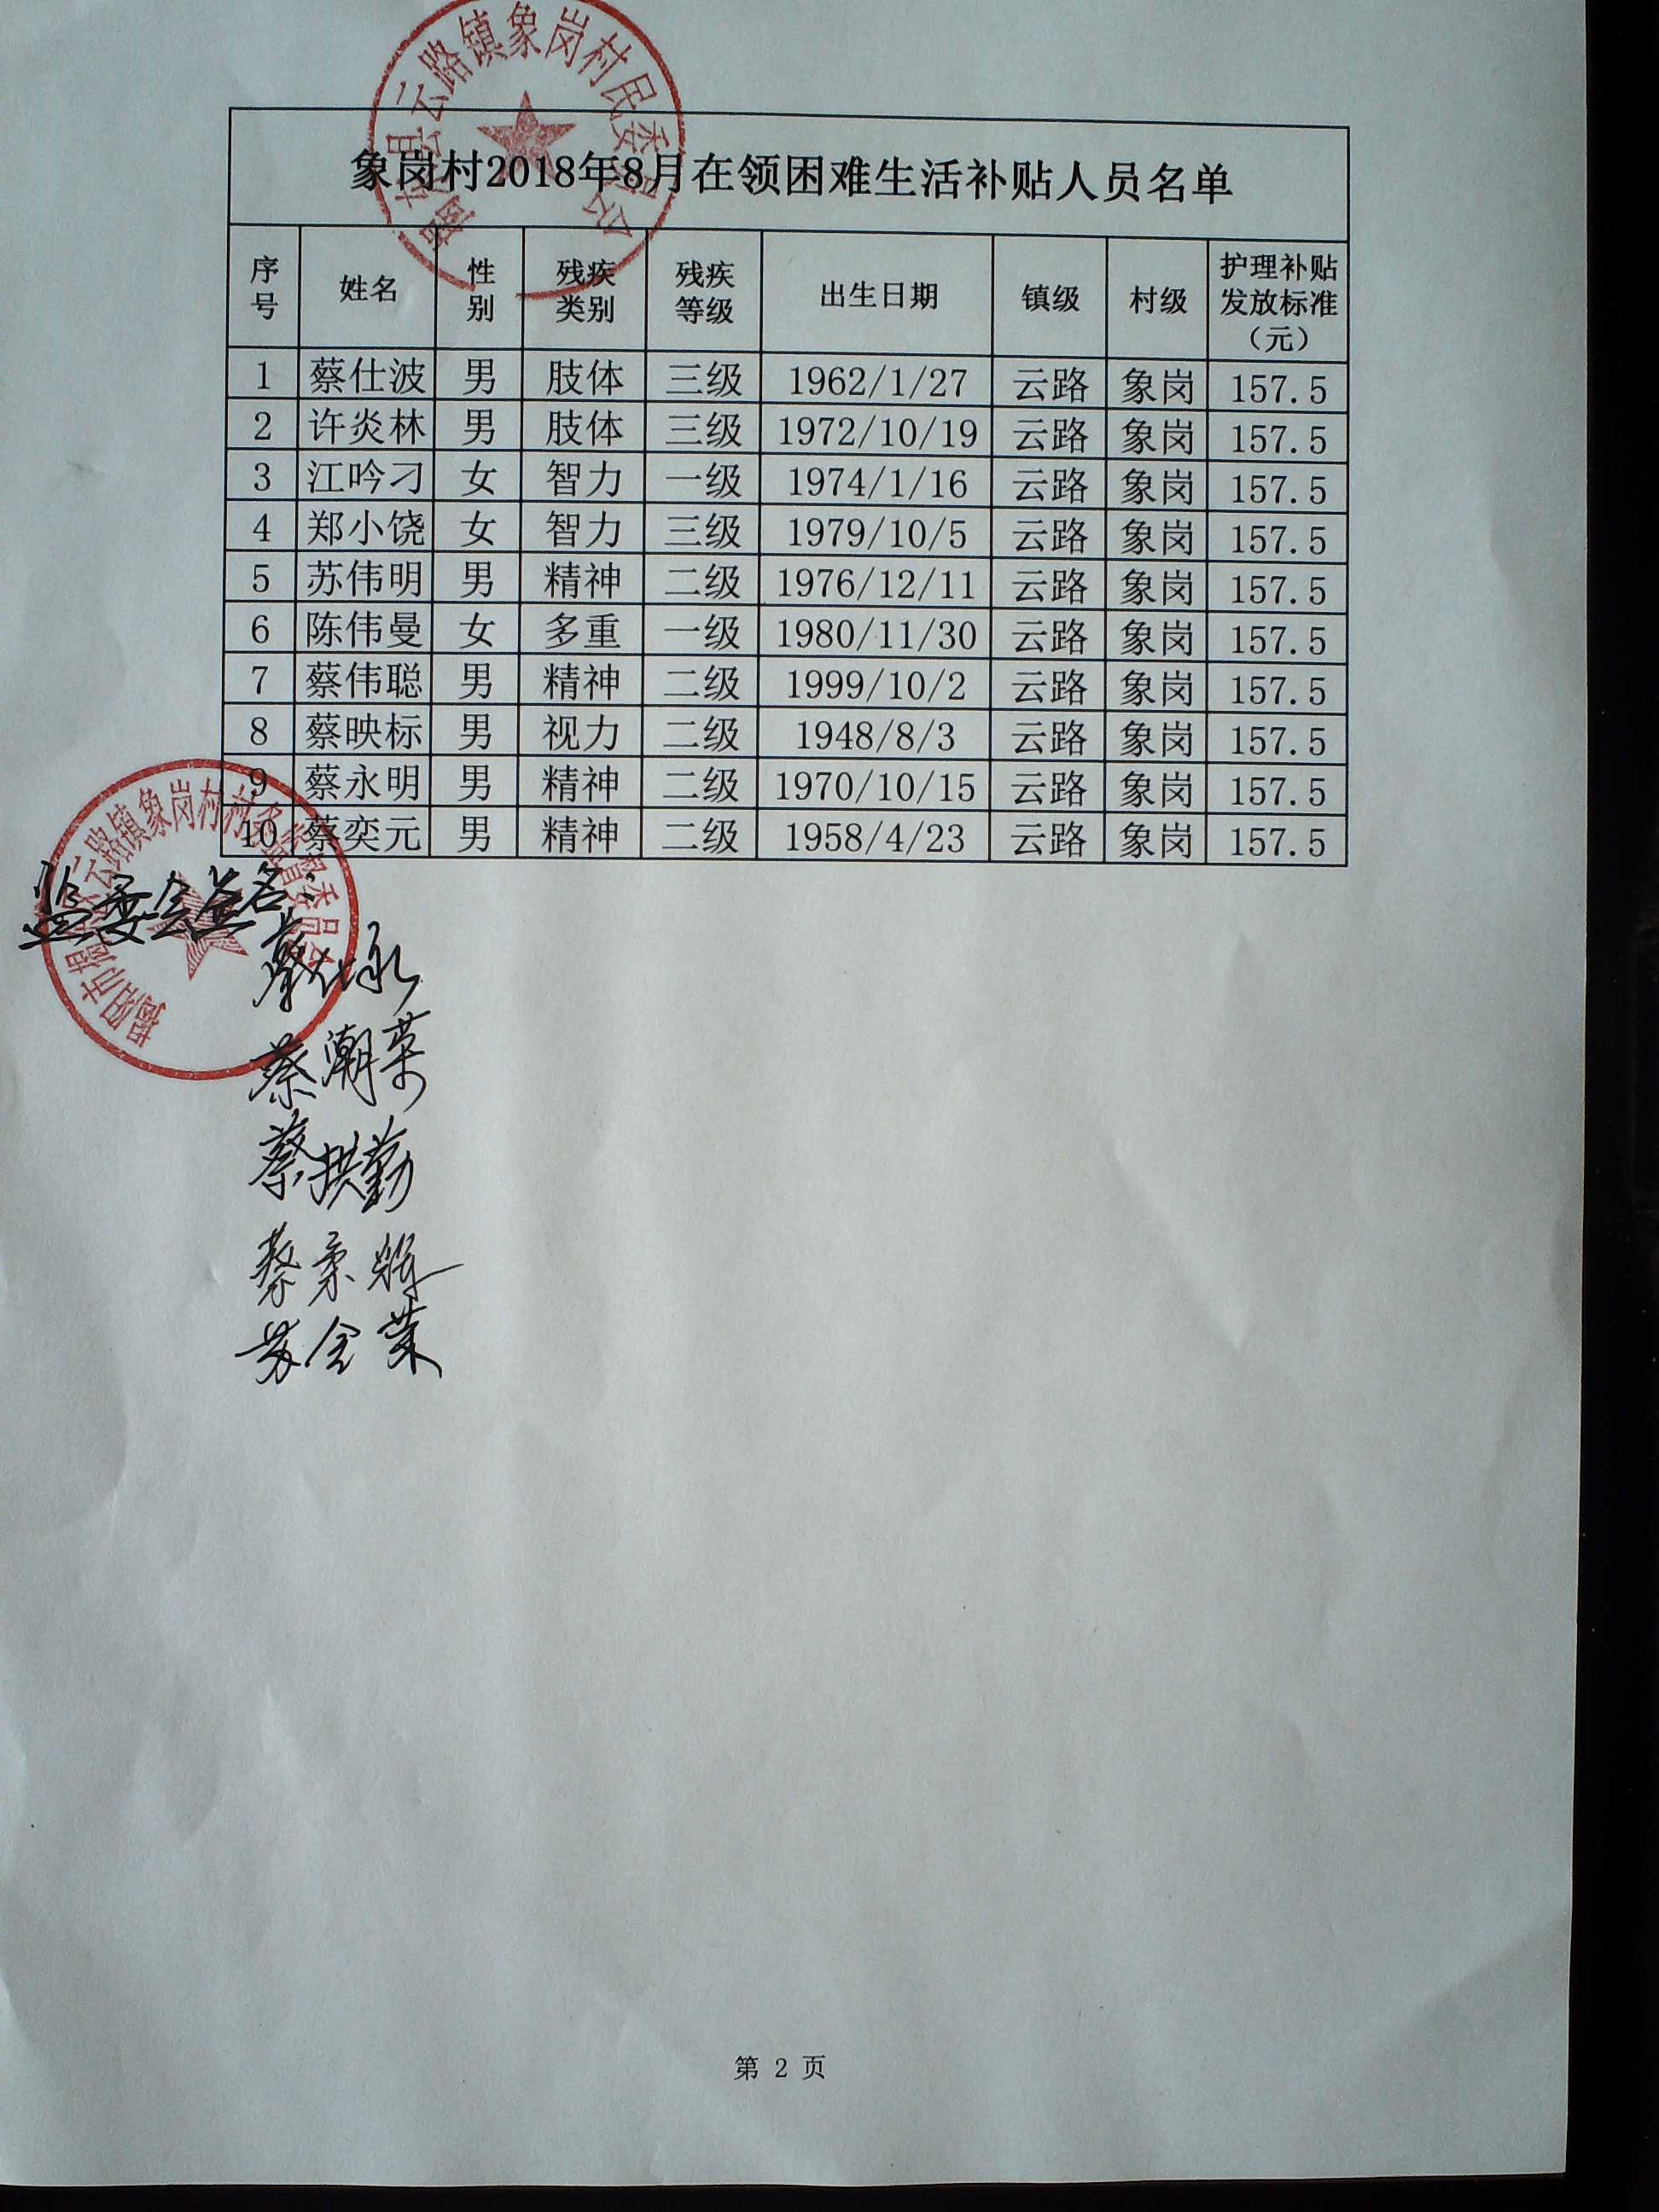 象岗村2018年8月在领困难生活补贴人员名单
序号 姓名 性别 残疾类别 残疾等级 出生日期 镇级 村级 护理补贴发放标准（元）
1 蔡仕波 男 肢体 三级 1962/1/27 云路 象岗 157.5
2 许炎林 男 肢体 三级 1972/10/19 云路 象岗 157.5
3 江吟刁 女 智力 一级 1974/1/16 云路 象岗 157.5
4 郑小饶 女 智力 三级 1979/10/5 云路 象岗 157.5
5 苏伟明 男 精神 二级 1976/12/11 云路 象岗 157.5
6 陈伟曼 女 多重 一级 1980/11/30 云路 象岗 157.5
7 蔡伟聪 男 精神 二级 1999/10/2 云路 象岗 157.5
8 蔡映标 男 视力 二级 1948/8/3 云路 象岗 157.5
9 蔡永明 男 精神 二级 1970/10/15 云路 象岗 157.5
10 蔡奕元 男 精神 二级 1958/4/23 云路 象岗 157.5
监委会签名：
蔡仕永
蔡潮荣
蔡拱勤
第 2 页